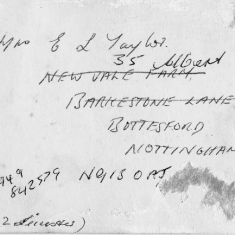 Mrs E L Taylor.
35 Albert
NEW VALE FARM
BARKESTONE LANE
BOTTESFORD
NOTTINGHAM
949
842579 NG13 0AJ